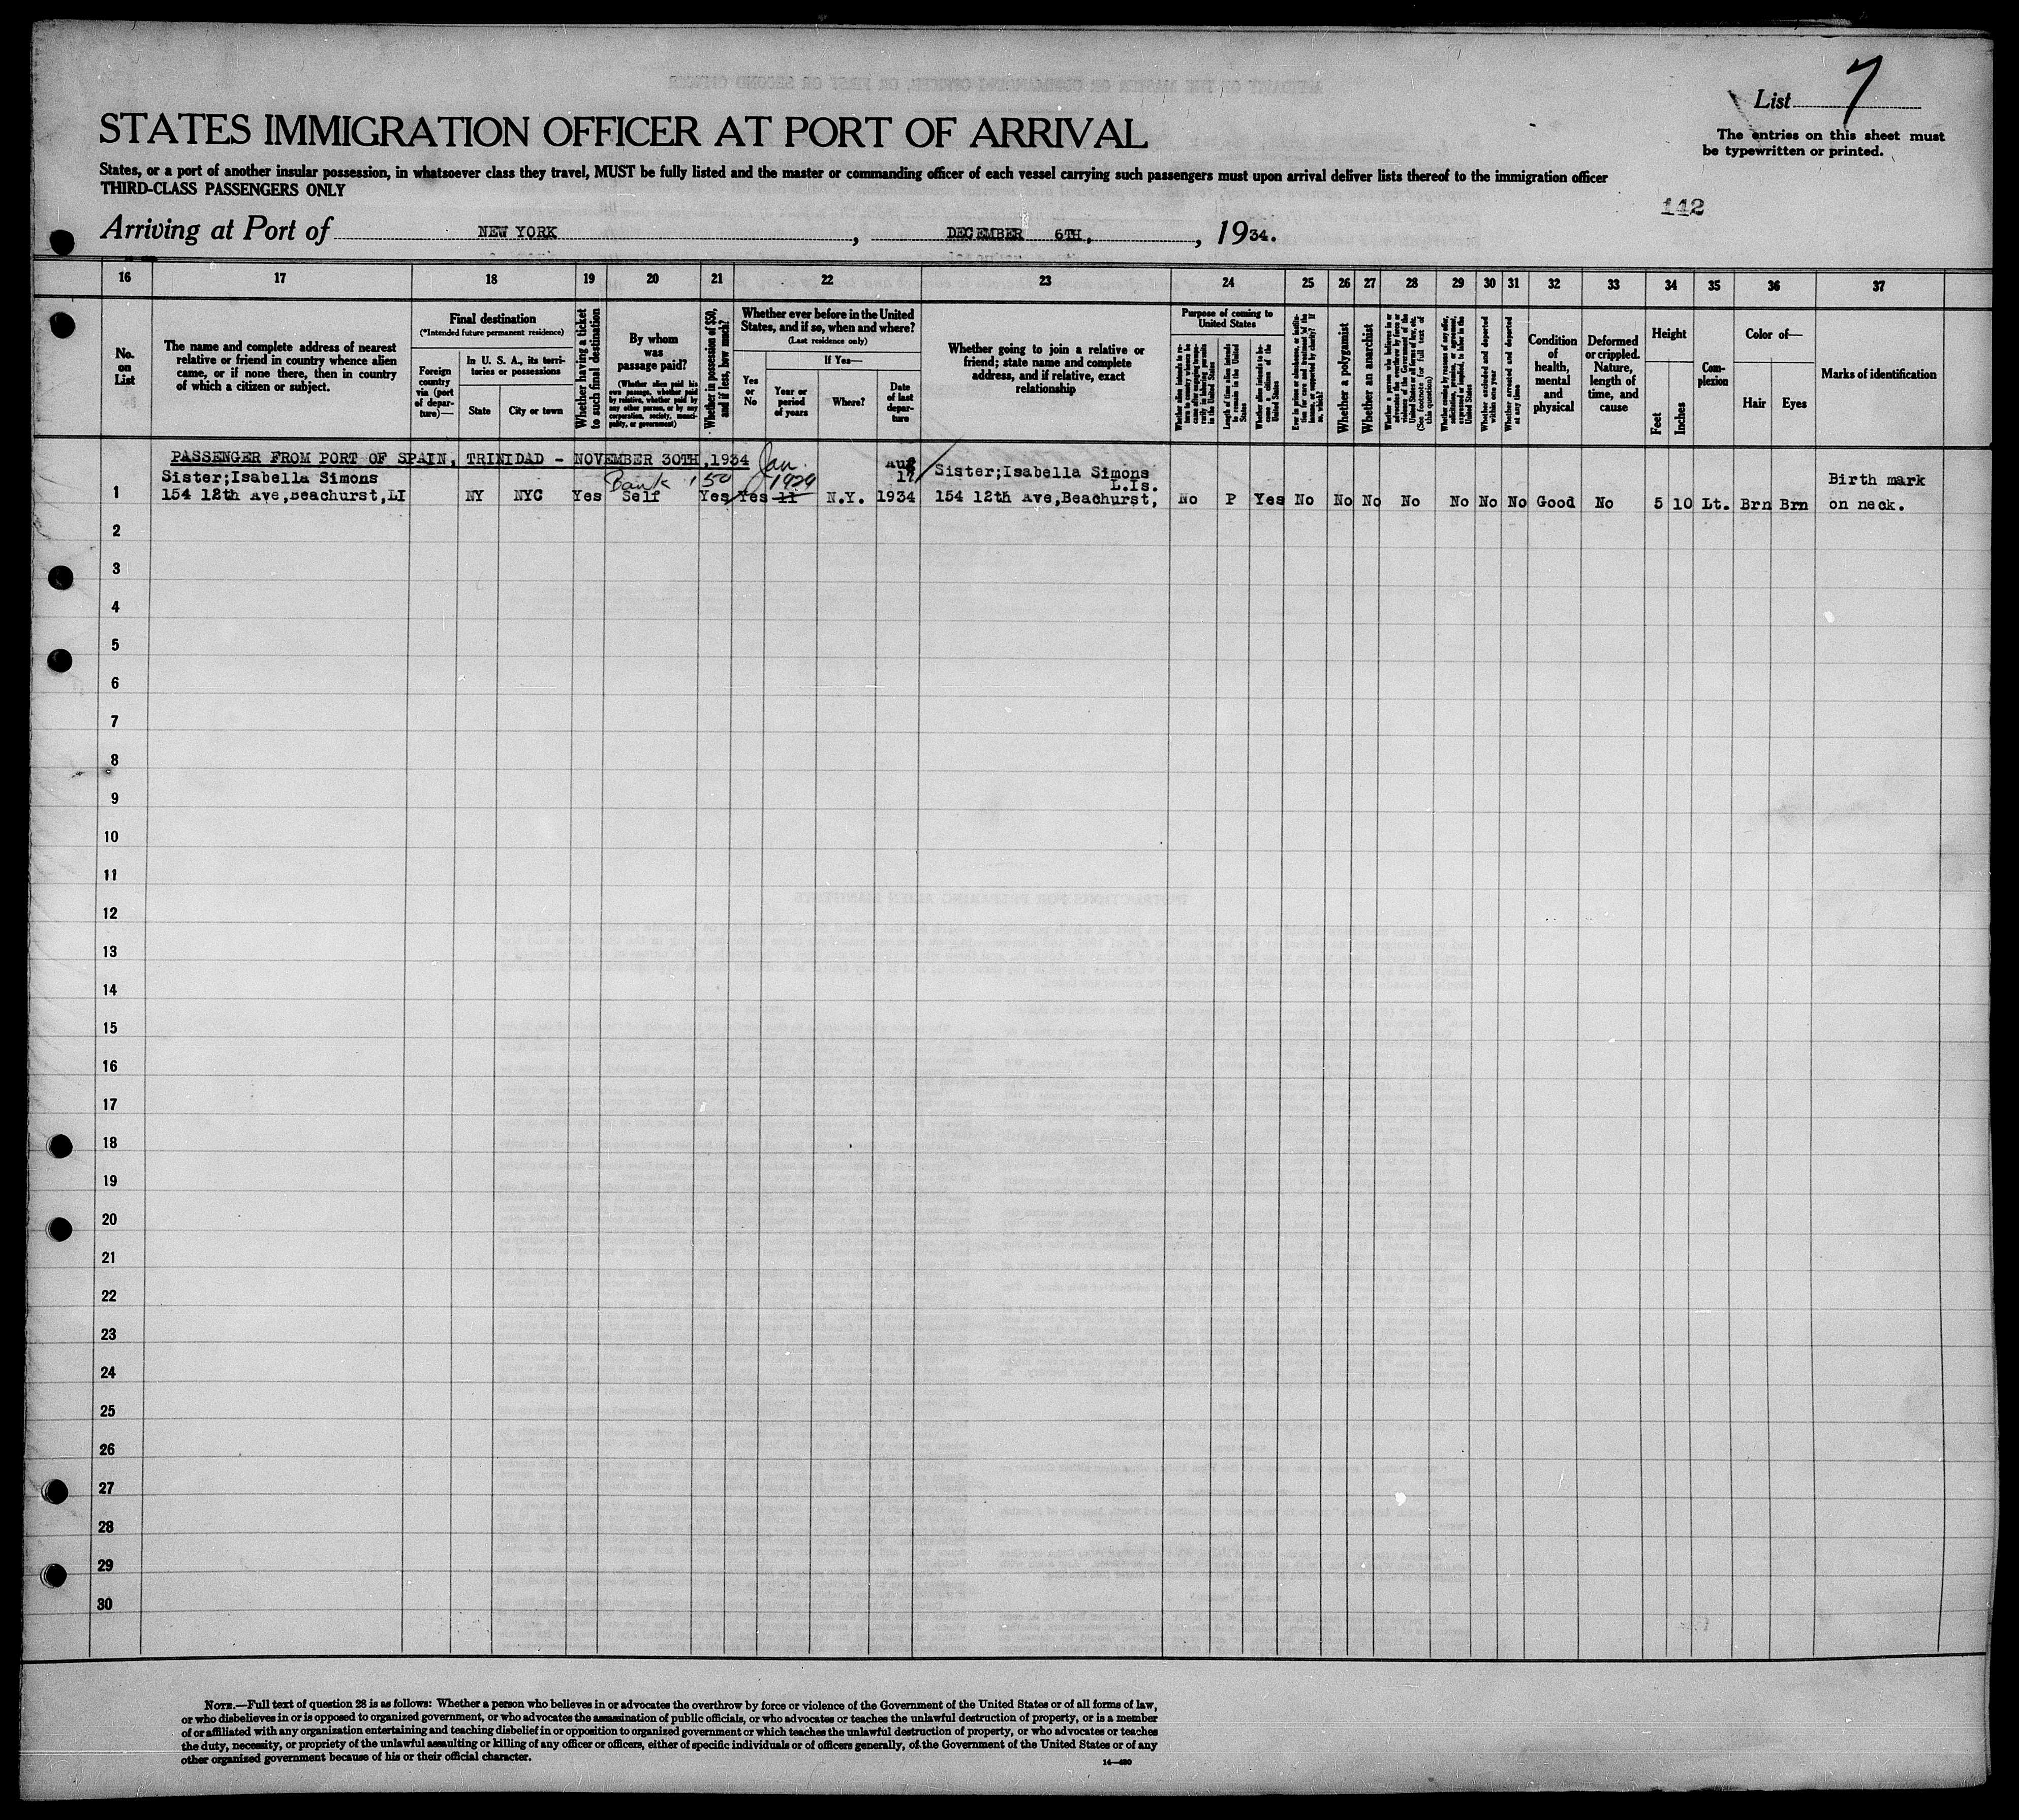 List 7
STATES IMMIGRATION OFFICER AT PORT OF ARRIVAL
The entries on this sheet must
be typewritten or printed.
States, or a port of another insular possession, in whatsoever class they travel, MUST be fully listed and the master or commanding officer of each vessel carrying such passengers must upon arrival deliver lists thereof to the immigration officer
THIRD-CLASS PASSENGERS ONLY
142
Arriving at Port of NEW YORK, DECEMBER 6TH, , 1934.
16 17 18 19 20 21 22 23 24 25 26 27 28 29 30 31 32 33 34 35 36 37
No. on List
The name and complete address of nearest
relative or friend in country whence alien
came, or if none there, then in country
of which a citizen or subject.
Final destination
(*Intended future permanent residence)
Foreign country via (port of departure)—
In U. S. A., its territories or possessions
State
City or town
Whether having a ticket to such final destination
By whom was passage paid?
(Whether alien paid his own passage, whether paid by relative, whether paid by any other person, or by any corporation, society, municipality, or government)
Whether in possession of $50, and if less, how much?
Whether ever before in the United
States, and if so, when and where?
(Last residence only)
Yes or No
If Yes—
Year or period of years
Where?
Date of last departure
Whether going to join a relative or
friend; state name and complete
address, and if relative, exact
relationship
Purpose of coming to United States
Whether alien intends to return to country whence he came after engaging temporarily in laboring pursuits in the United States
Length of time alien intends to remain in the United States
Whether alien intends to become a citizen of the United States
Ever in prison or almshouse, or institution for care and treatment of the insane, or supported by charity? If so, which?
Whether a polygamist
Whether an anarchist
Whether a person who believes in or advocates the overthrow by force or violence of the Government of the United States or all forms of law, etc. (See footnote for full text of this question)
Whether coming by reason of any offer, solicitation, promise, or agreement, expressed or implied, to labor in the United States
Whether excluded and deported within one year
Whether arrested and deported at any time
Condition of health, mental and physical
Deformed or crippled. Nature, length of time, and cause
Height
Feet
Inches
Complexion
Color of—
Hair
Eyes
Marks of identification
PASSENGER FROM PORT OF SPAIN, TRINIDAD - NOVEMBER 30TH,1934
1 Sister;Isabella Simons
154 12th Ave,Beachurst,LI
NY NYC Yes
Bank
Self
150
Yes Yes
Jan.
1929
11
N.Y.
Aug
17
1934
Sister;Isabella Simons
L.Is.
154 12th Ave,Beachurst,
No P Yes No No No No No No No Good No 5 10 Lt. Brn Brn
Birth mark
on neck.
2
3
4
5
6
7
8
9
10
11
12
13
14
15
16
17
18
19
20
21
22
23
24
25
26
27
28
29
30
NOTE.—Full text of question 28 is as follows: Whether a person who believes in or advocates the overthrow by force or violence of the Government of the United States or of all forms of law,
or who disbelieves in or is opposed to organized government, or who advocates the assassination of public officials, or who advocates or teaches the unlawful destruction of property, or is a member
of or affiliated with any organization entertaining and teaching disbelief in or opposition to organized government or which teaches the unlawful destruction of property, or who advocates or teaches
the duty, necessity, or propriety of the unlawful assaulting or killing of any officer or officers, either of specific individuals or of officers generally, of the Government of the United States or of any
other organized government because of his or their official character.
14—430